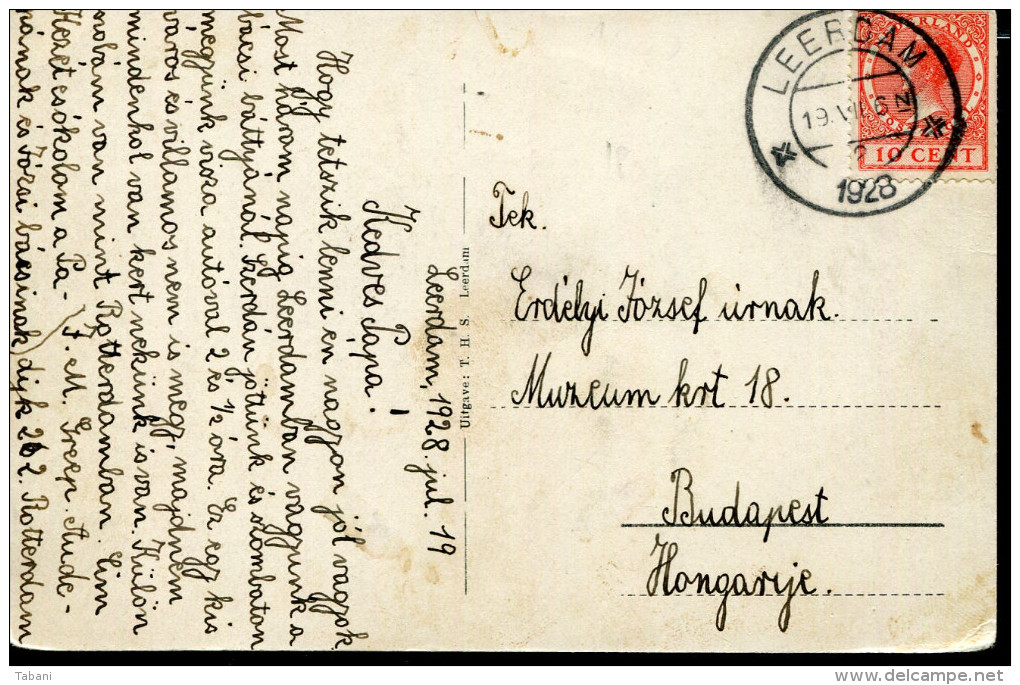 Leerdam, 1928. jul. 19
Kedves Pápa!
Hogy tetszik lenni én nagyon jól vagyok.
Most három napig Leerdamban vagyunk a
bácsi báttyánál. Szerdán jöttünk és szombaton
megyünk vissza autóval 2 és ½ óra. Ez egy kis
város és villamos nem is megy, majdnem
mindenhol van kert nekünk is van. Külön
szobában van mint Rotterdamban. Cim
Kezét csókolom a Pa- J. M. Greep. Aude-
pának és Józsi bácsinak) dijk 262. Rotterdam
Uitgave: T. H. S. Leerdam
LEERDAM
19.VII.6 N
1928
NEDERLAND
10 CENT
Tek.
Erdélyi József úrnak.
Muzeum krt 18.
Budapest
Hongarije.
Tabani
delcampe.net